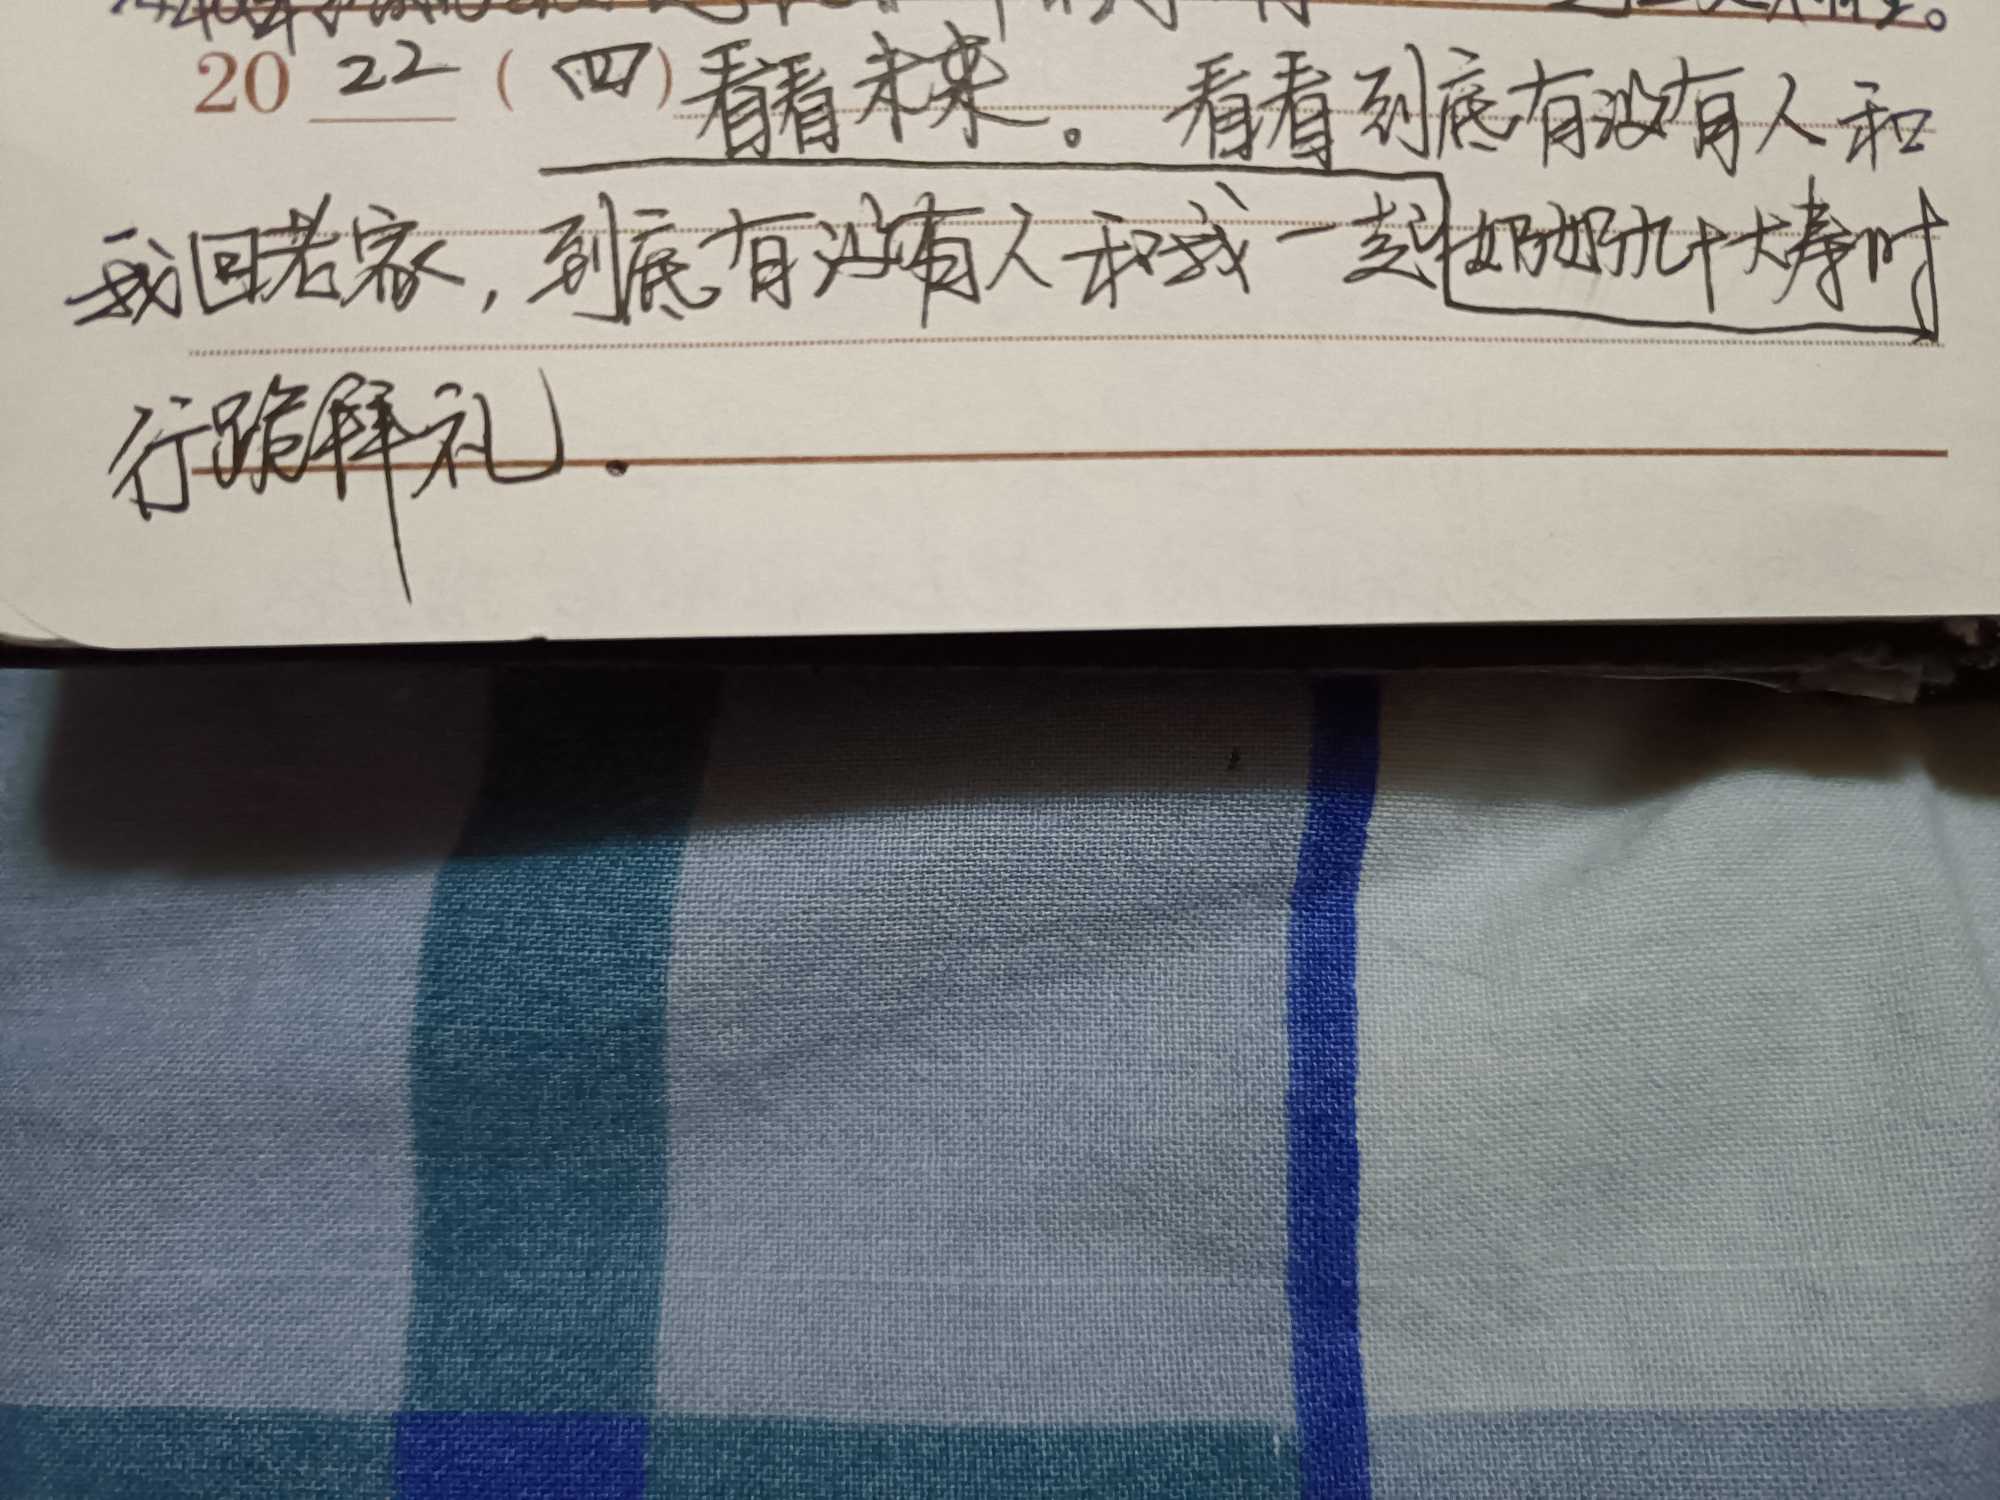 20 22 (四) 看看未来。看看到底有没有人和
我回老家，到底有没有人和我一起奶奶九十大寿时
行跪拜礼.